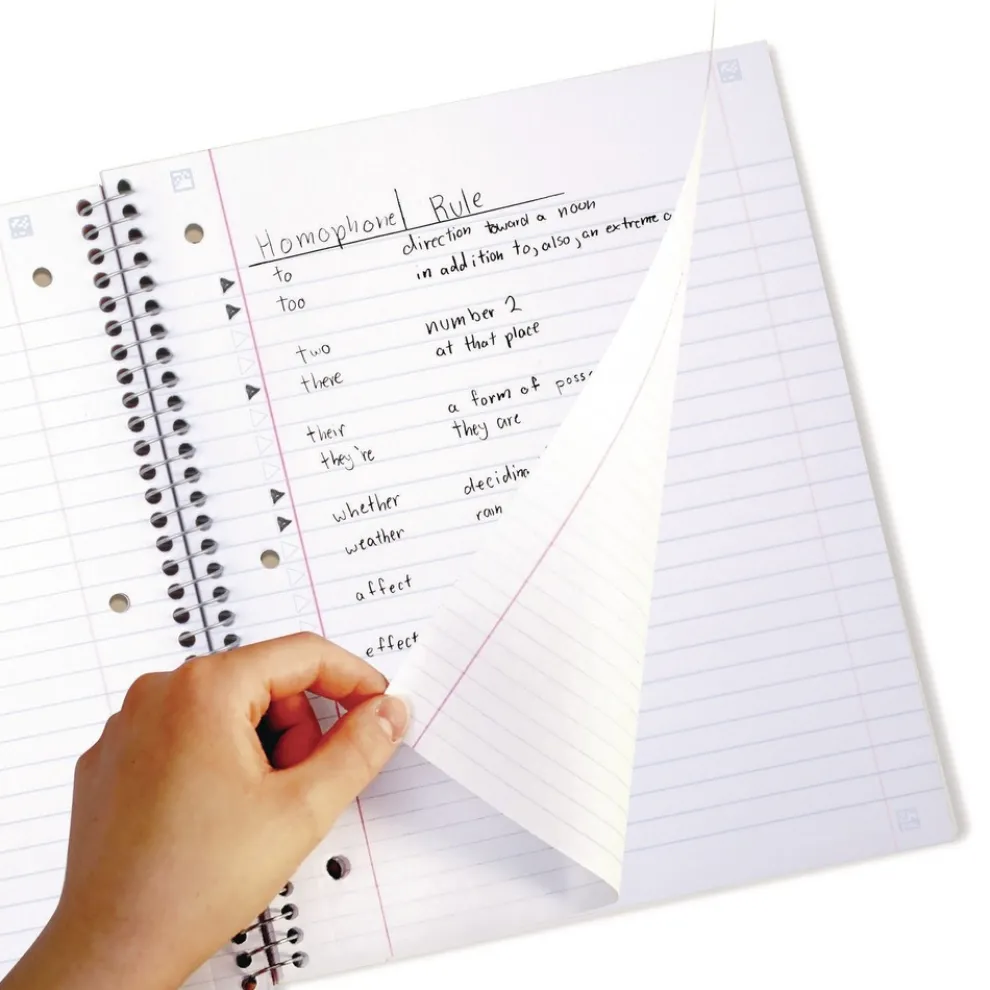 Homophone Rule
to direction toward a noun
too in addition to, also, an extreme
two number 2
there at that place
their a form of
they're they are
whether deciding
weather rain
affect
effect